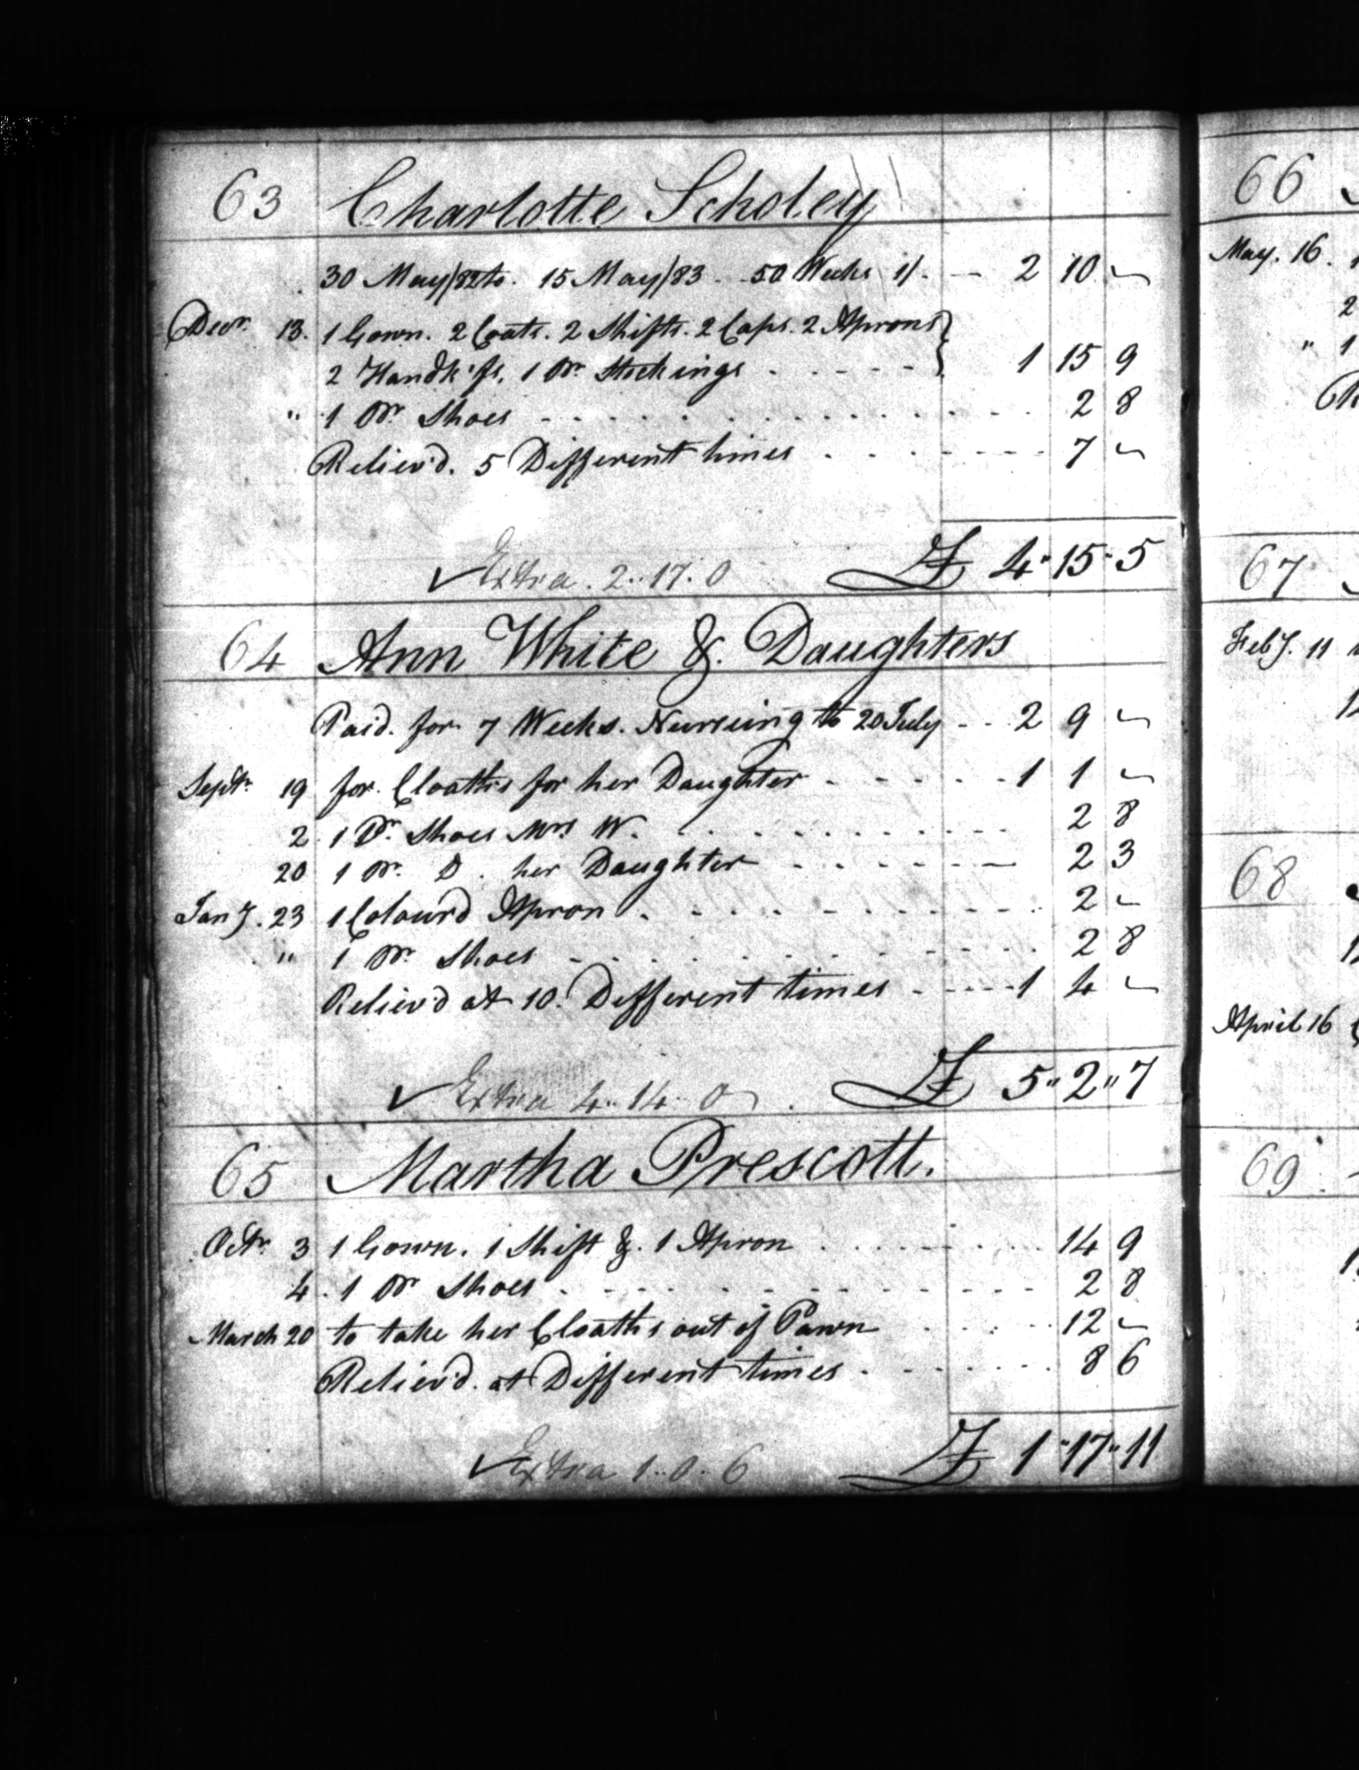 63 Charlotte Scholey
30 May/82 to. 15 May/83 - - 50 Weeks 1/. - 2 10 -
Decr. 13. 1 Gown. 2 Coats. 2 Shifts. 2 Caps. 2 Aprons }
2 Handk'fs. 1 Pr. Stockings - - - - - } 1 15 9
" 1 Pr. Shoes - - - - - - - - 2 8
Reliev'd. 5 Different times - - - - - - 7 -
✓ Extra. 2..17.0 £ 4"15"5
64 Ann White & Daughters
Paid. for 7 Weeks. Nursing to 20 July - - 2 9 -
Septr. 19 for. Cloaths for her Daughter - - - - - 1 1 -
2. 1 Pr. Shoes Mrs W. - - - - - - - - 2 8
20 1 Pr. D. her Daughter - - - - - 2 3
Jany. 23 1 Colour'd Apron . - - - - - - - 2 -
" 1 Pr. Shoes - - - - - - - - 2 8
Reliev'd at 10. Different times - - - - 1 4 -
✓ Extra 4..14..0 £ 5"2"7
65 Martha Prescott.
Octr. 3 1 Gown. 1 Shift &. 1 Apron - - - - - 14 9
4. 1 Pr Shoes - - - - - - - - 2 8
March 20 to take her Cloaths out of Pawn - - - - 12 -
Reliev'd. at Different times - - - - - - 8 6
✓ Extra 1..0..6 £ 1"17"11
66
May. 16. 1
2
" 1
67
Feby. 11
68
April 16
69